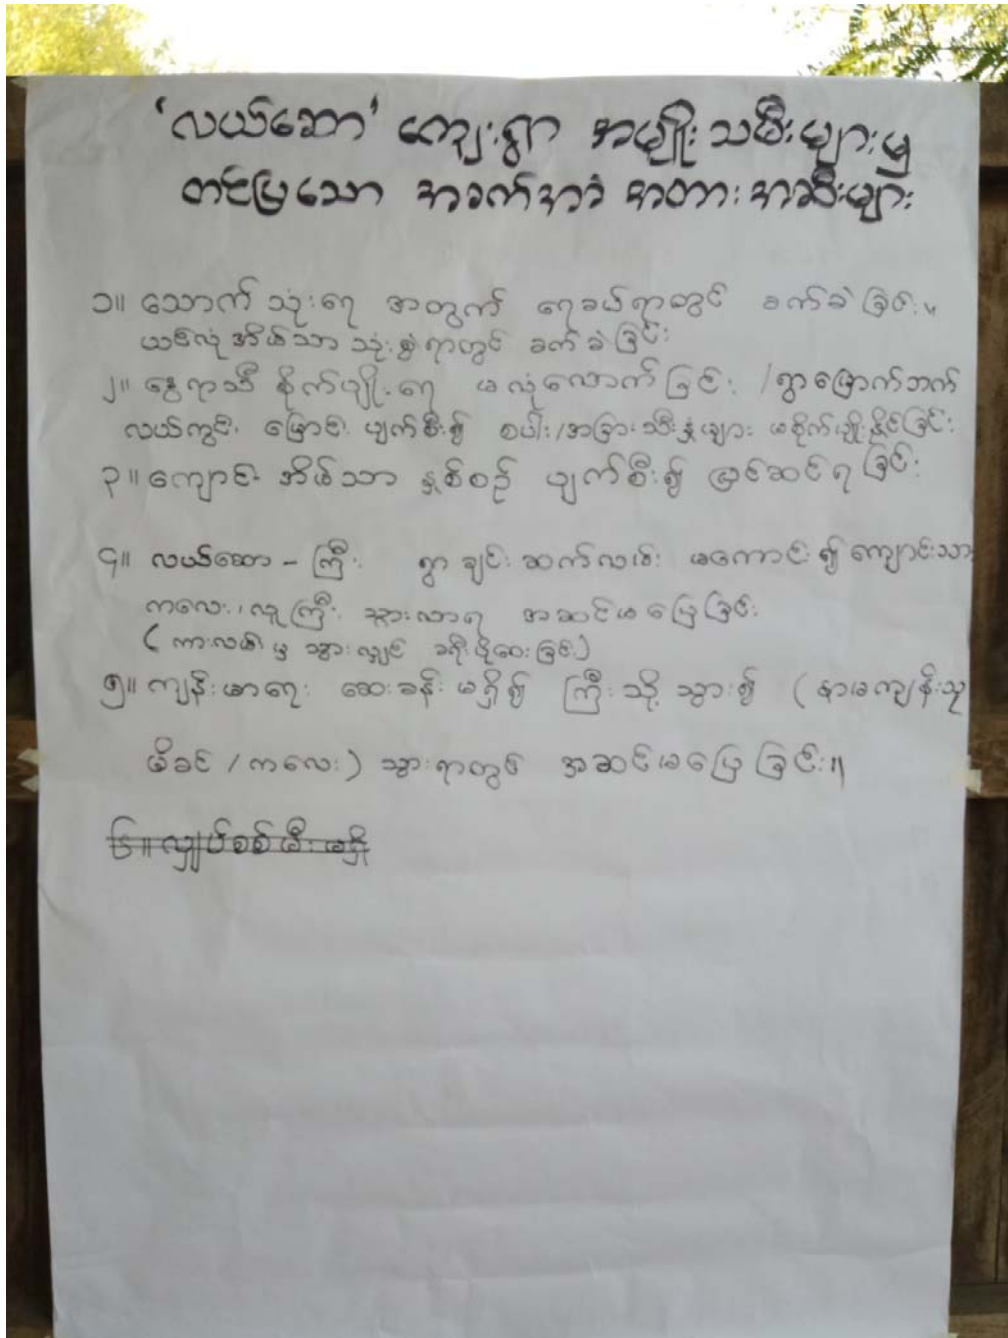 'လယ်ဆော' ကျေးရွာ အမျိုးသမီးများမှ
တင်ပြသော အခက်အခဲ အတားအဆီးများ
၁။ သောက်သုံးရေ အတွက် ရေခပ်ရာတွင် ခက်ခဲခြင်း။
ယင်လုံအိမ်သာ သုံးစွဲရာတွင် ခက်ခဲခြင်း
၂။ နွေရာသီ စိုက်ပျိုးရေ မလုံလောက်ခြင်း /ရွာမြောက်ဘက်
လယ်ကွင်း မြောင်း ပျက်စီး၍ စပါး/အခြားသီးနှံများ မစိုက်ပျိုးနိုင်ခြင်း
၃။ ကျောင်း အိမ်သာ နှစ်စဉ် ပျက်စီး၍ ပြင်ဆင်ရခြင်း
၄။ လယ်ဆော – ကြီး ရွာချင်းဆက်လမ်း မကောင်း၍ ကျောင်းသား
ကလေး၊လူကြီး သွားလာရ အဆင်မပြေခြင်း
(ကားလမ်းမှ သွားလျှင် ခရီးပိုဝေးခြင်း)
၅။ ကျန်းမာရေး ဆေးခန်း မရှိ၍ ကြီးသို့ သွား၍ (နာမကျန်းသူ
မိခင်/ကလေး) သွားရာတွင် အဆင်မပြေခြင်း။
၆။ လျှပ်စစ်မီး မရှိ